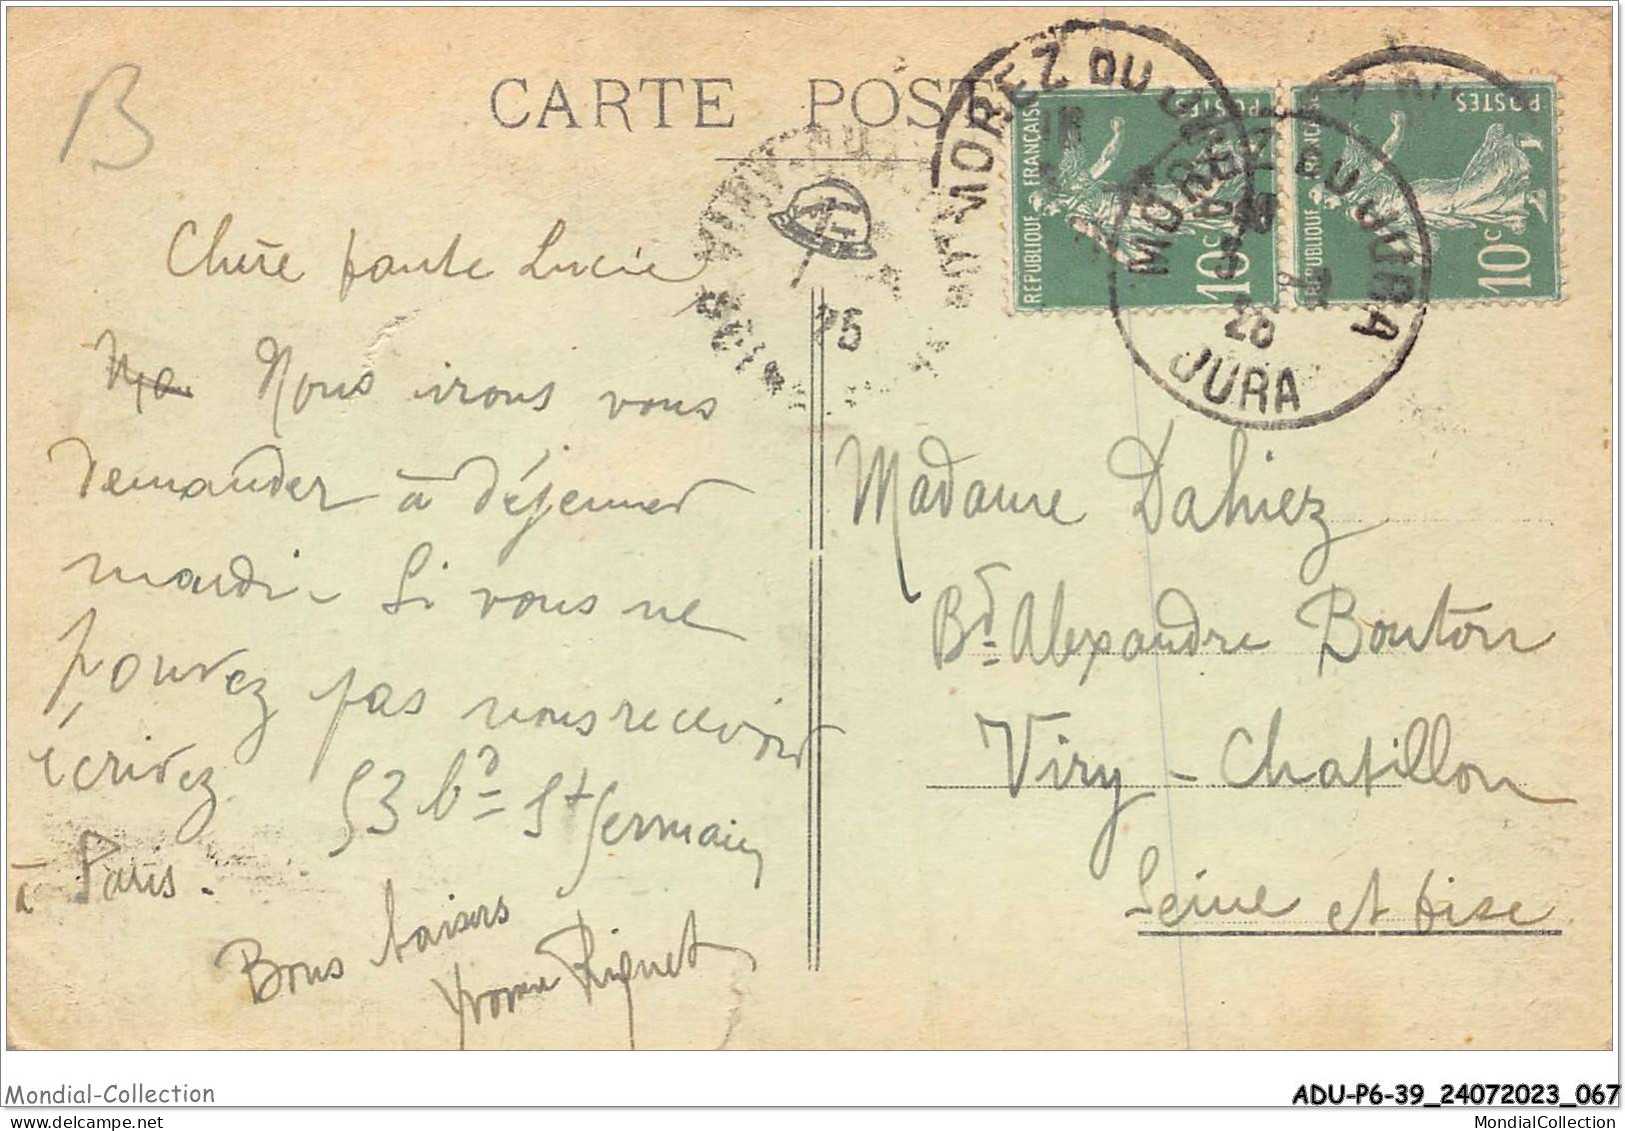 B
CARTE POST
MOREZ DU JURA
MOREZ DU JURA
JURA
26
25
REPUBLIQUE FRANÇAISE
POSTES
10c
REPUBLIQUE FRANÇAISE
POSTES
10c
Chère tante Lucie
Nous irons vous
demander à déjeuner
mardi - Si vous ne
pouvez pas nous recevoir
écrivez 53 bd St Germain
à Paris.
Bons baisers
Yvonne Riquet
Madame Dahiez
Bd. Alexandre Bouton
Viry - Chatillon
Seine et Oise
Mondial-Collection
ADU-P6-39_24072023_067
delcampe.net
MondialCollection